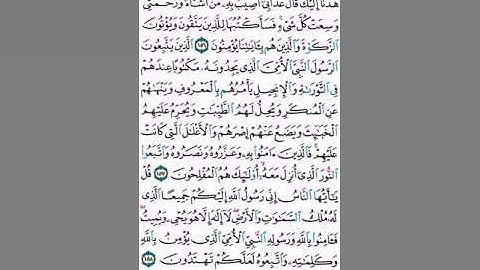 هُدْنَآ إِلَيْكَ قَالَ عَذَابِىٓ أُصِيبُ بِهِۦ مَنْ أَشَآءُ وَرَحْمَتِى
وَسِعَتْ كُلَّ شَىْءٍ فَسَأَكْتُبُهَا لِلَّذِينَ يَتَّقُونَ وَيُؤْتُونَ
ٱلزَّكَوٰةَ وَٱلَّذِينَ هُم بِـَٔايَـٰتِنَا يُؤْمِنُونَ ١٥٦ ٱلَّذِينَ يَتَّبِعُونَ
ٱلرَّسُولَ ٱلنَّبِىَّ ٱلْأُمِّىَّ ٱلَّذِى يَجِدُونَهُۥ مَكْتُوبًا عِندَهُمْ
فِى ٱلتَّوْرَىٰةِ وَٱلْإِنجِيلِ يَأْمُرُهُم بِٱلْمَعْرُوفِ وَيَنْهَىٰهُمْ
عَنِ ٱلْمُنكَرِ وَيُحِلُّ لَهُمُ ٱلطَّيِّبَـٰتِ وَيُحَرِّمُ عَلَيْهِمُ
ٱلْخَبَـٰٓئِثَ وَيَضَعُ عَنْهُمْ إِصْرَهُمْ وَٱلْأَغْلَـٰلَ ٱلَّتِى كَانَتْ
عَلَيْهِمْ ۚ فَٱلَّذِينَ ءَامَنُوا۟ بِهِۦ وَعَزَّرُوهُ وَنَصَرُوهُ وَٱتَّبَعُوا۟
ٱلنُّورَ ٱلَّذِىٓ أُنزِلَ مَعَهُۥٓ ۙ أُو۟لَـٰٓئِكَ هُمُ ٱلْمُفْلِحُونَ ١٥٧ قُلْ
يَـٰٓأَيُّهَا ٱلنَّاسُ إِنِّى رَسُولُ ٱللَّهِ إِلَيْكُمْ جَمِيعًا ٱلَّذِى
لَهُۥ مُلْكُ ٱلسَّمَـٰوَٰتِ وَٱلْأَرْضِ ۖ لَآ إِلَـٰهَ إِلَّا هُوَ يُحْىِۦ وَيُمِيتُ ۖ
فَـَٔامِنُوا۟ بِٱللَّهِ وَرَسُولِهِ ٱلنَّبِىِّ ٱلْأُمِّىِّ ٱلَّذِى يُؤْمِنُ بِٱللَّهِ
وَكَلِمَـٰتِهِۦ وَٱتَّبِعُوهُ لَعَلَّكُمْ تَهْتَدُونَ ١٥٨